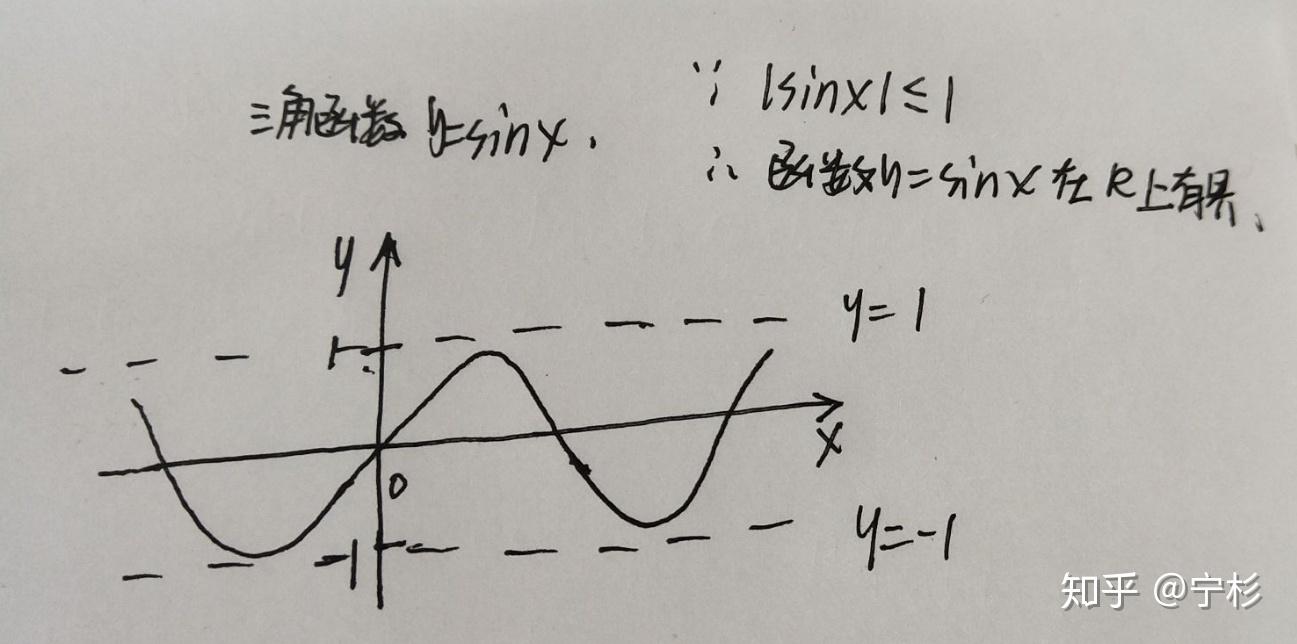 三角函数 y=sinx.
∵ |sinx|≤1
∴ 函数y=sinx在R上有界、
y
1
y=1
x
0
-1
y=-1
知乎 @宁杉